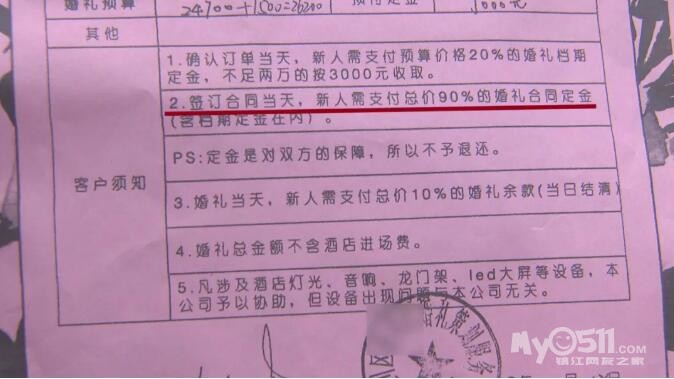 婚礼预算
24700+1500=26200
预付定金
1000元
其他
1.确认订单当天，新人需支付预算价格20%的婚礼档期
定金，不足两万的按3000元收取。
2.签订合同当天，新人需支付总价90%的婚礼合同定金
(含档期定金在内)。
PS:定金是对双方的保障，所以不予退还。
客户须知
3.婚礼当天，新人需支付总价10%的婚礼余款(当日结清)
4.婚礼总金额不含酒店进场费。
5.凡涉及酒店灯光、音响、龙门架、led大屏等设备，本
公司予以协助，但设备出现问题与本公司无关。
婚礼策划服务
My0511.com
镇江网友之家